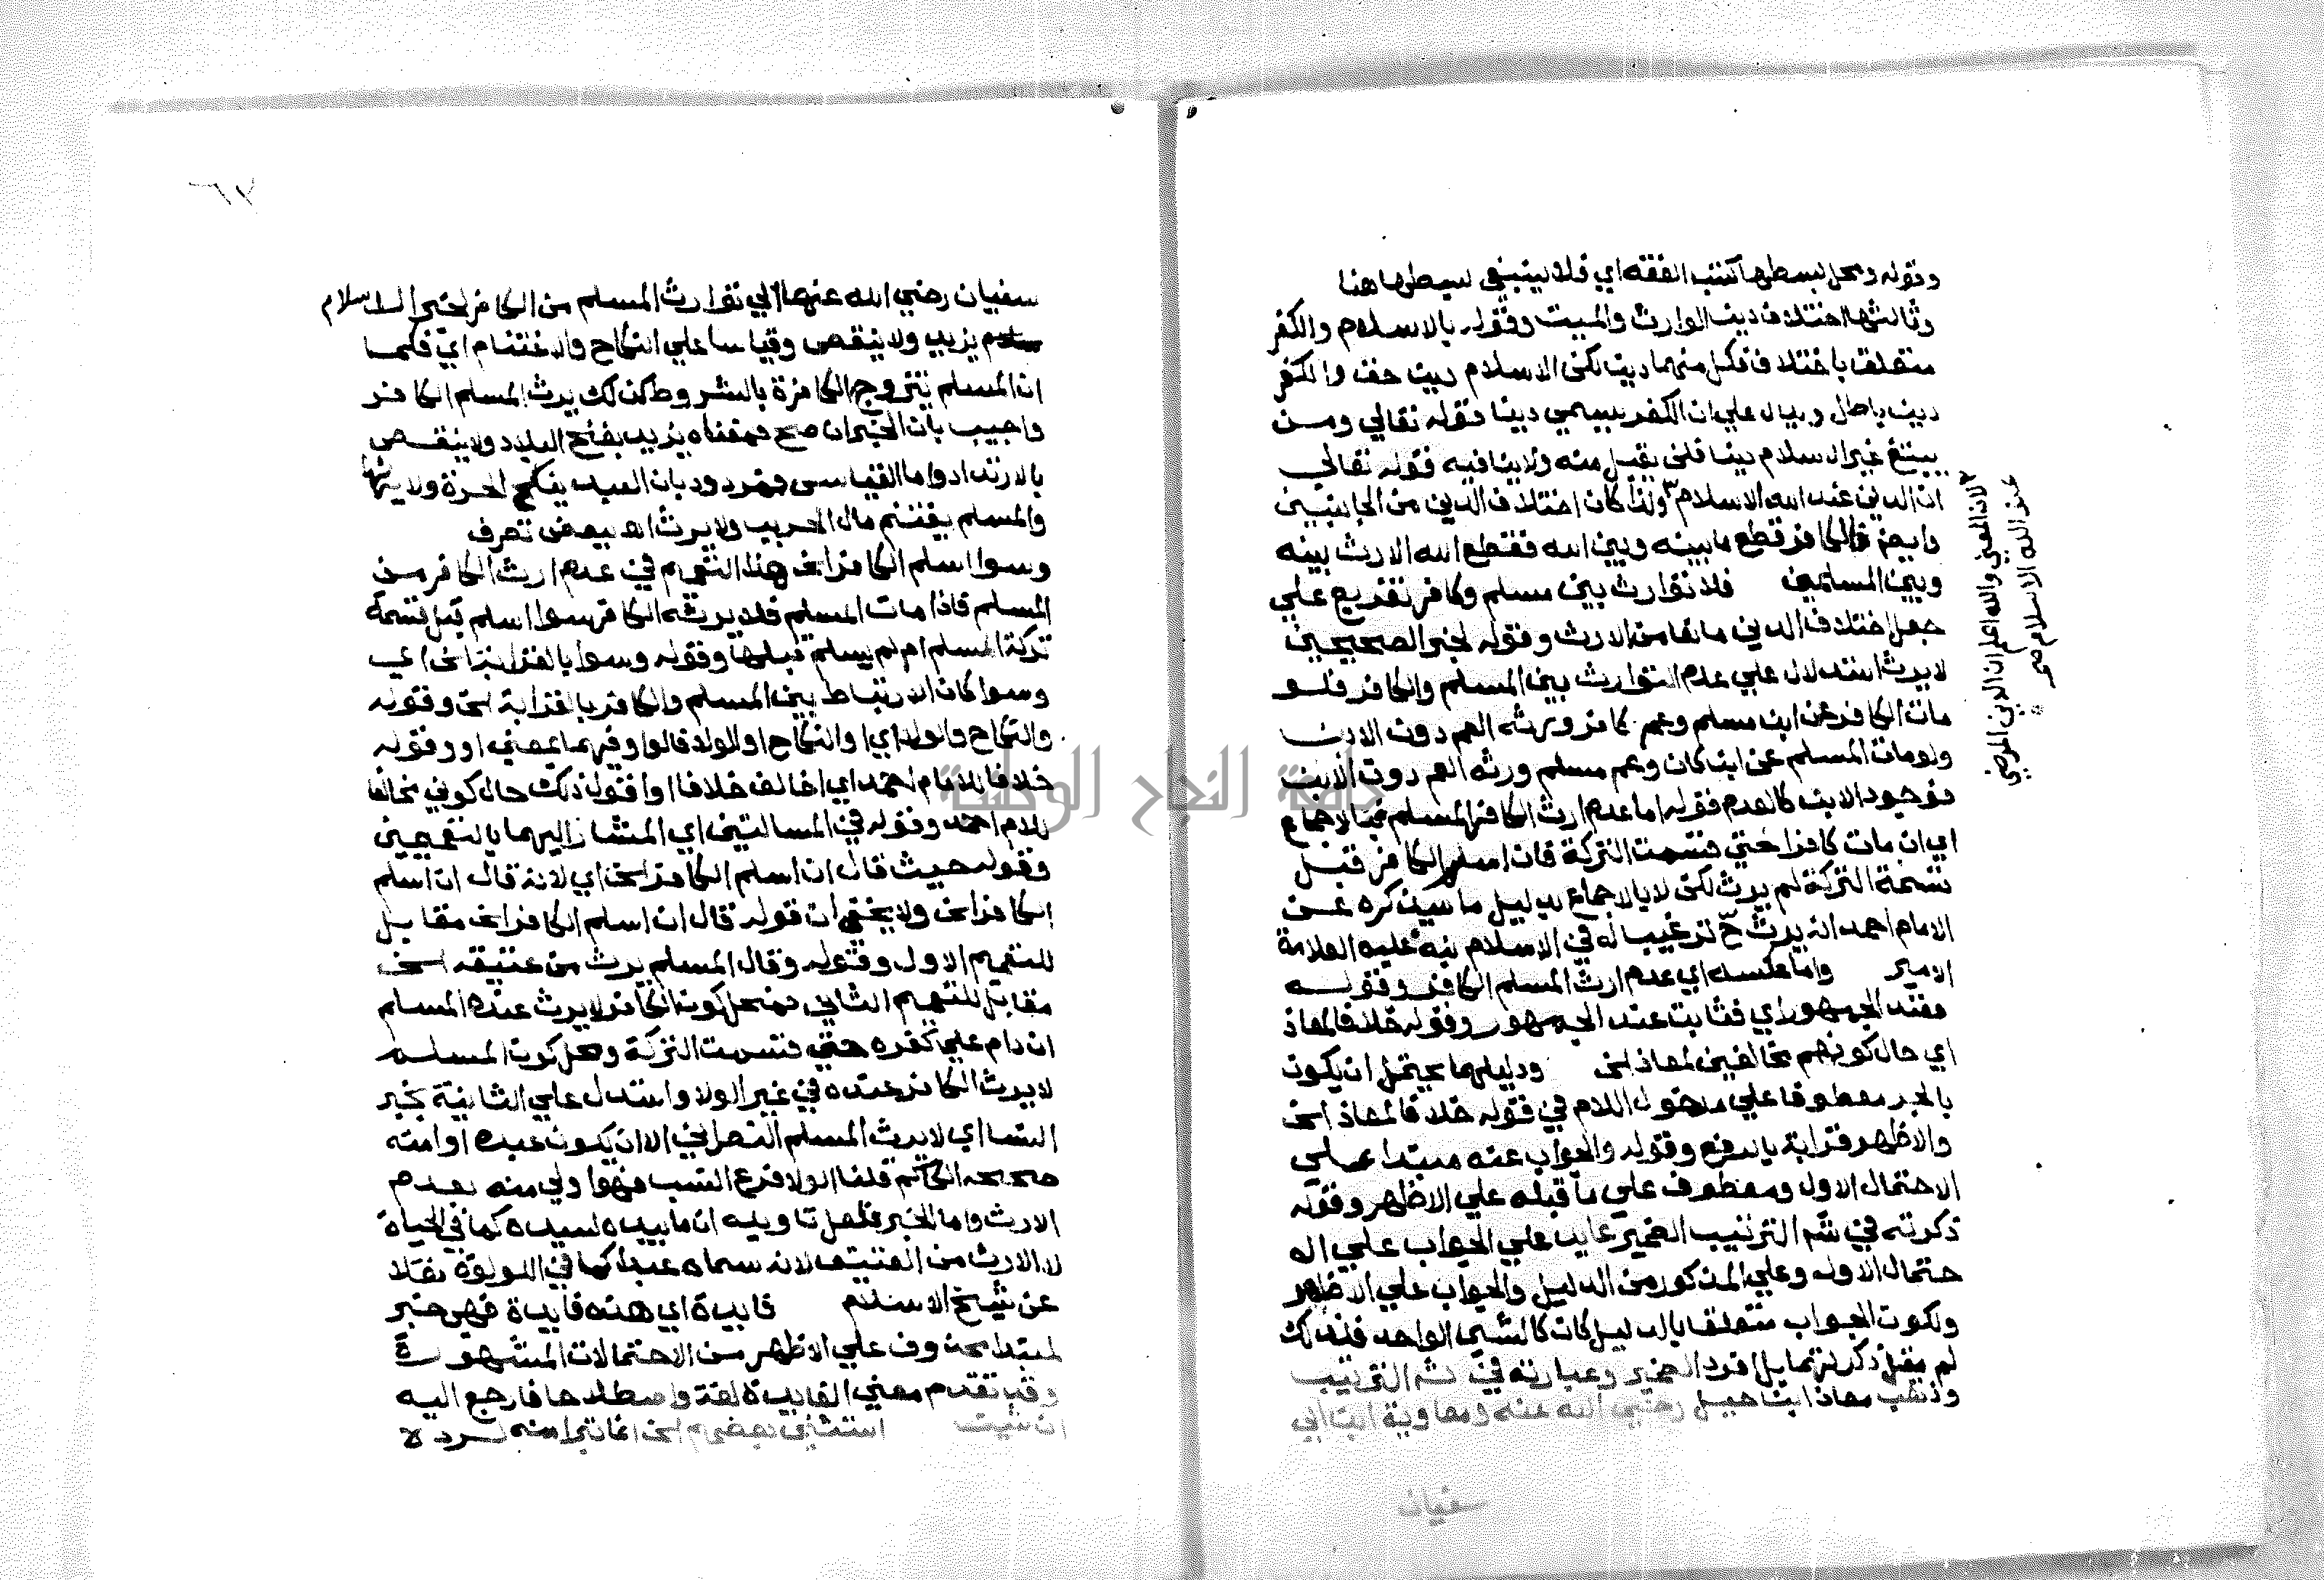 وقوله ومحل بسطها كتب الفقه اي فلا ينبغي بسطها هنا
وثالثها اختلاف دين الوارث والميت وقوله بالاسلام والكفر
متعلق باختلاف فكل منهما دين لكن الاسلام دين حق والكفر
دين باطل ويدل علي ان الكفر يسمي دينا قوله تعالي ومن
يبتغ غير الاسلام دينا فلن يقبل منه ولا ينافيه قوله تعالي
ان الدين عند الله الاسلام ولذا كان اختلاف الدين من الجانبين
لان المعني والله اعلم ان الدين المرضي
عند الله الاسلام صح
وايضا فالكافر قطع ما بينه وبين الله فقطع الله الارث بينه
وبين المسلمين فلا توارث بين مسلم وكافر تفريع علي
جعل اختلاف الدين مانعا من الارث وقوله لخبر الصحيحين
لا يرث استدلال علي عدم التوارث بين المسلم والكافر فلو
مات الكافر عن ابن مسلم وعم كافر ورثه العم دون الابن
ولو مات المسلم عن ابن كان وعم مسلم ورثه العم دون الابن
فوجود الابن كالعدم قوله اما عدم ارث الكافر المسلم فبالاجماع
اي ان مات كافرا حتي قسمت التركة فان اسلم الكافر قبل
قسمة التركة لم يرث لكن لا بالاجماع بدليل ما سيذكره عن
الامام احمد انه يرث ح ترغيبا له في الاسلام نبه عليه العلامة
الامير واما عكسه اي عدم ارث المسلم الكافر وقوله
فعند الجمهور اي فثابت عند الجمهور وقوله خلافا لمعاذ
اي حال كونهم مخالفين لمعاذ الخ ودليلهما يحتمل ان يكون
بالجر معطوفا علي مدخول اللام في قوله خلافا لمعاذ الخ
والاظهر قراية بالرفع وقوله والجواب عنه مبتدا علي
الاحتمال الاول ومعطوف علي ما قبله علي الاظهر وقوله
ذكرته في شم الترتيب الضمير عايد علي الجواب علي الا
حتمال الاول وعلي المذكور من الدليل والجواب علي الاظهر
ولكون الجواب متعلقا بالدليل كان كالشي الواحد فلذلك
لم يقل ذكرتهما بل افرد الضمير وعبارته في شم الترتيب
وذهب معاذ ابن جبل رضي الله عنه ومعاوية ابن ابي
سفيان
٦٧
سفيان رضي الله عنهما الي توارث المسلم من الكافر لخبر الاسلام
يزيد ولا ينقص وقياسا علي النكاح والاغتنام اي فكما
ان المسلم يتزوج الكافرة بالشروط كذلك يرث المسلم الكافر
واجيب بان الخبر ان صح فمعناه يزيد بفتح البلاد ولا ينقص
بالارتداد واما القياس فمردود بان العبد ينكح الحرة ولا يرثها
والمسلم يغتنم مال الحربي ولا يرثه اه ببعض تصرف
وسوا اسلم الكافر الخ هذا التعميم في عدم ارث الكافر من
المسلم فاذا مات المسلم فلا يرثه الكافر سوا اسلم قبل قسمة
تركة المسلم ام لم يسلم قبلها وقوله وسوا بالقرابة الخ اي
وسوا كان الارتباط بين المسلم والكافر بالقرابة الخ وقوله
والنكاح والولا اي او النكاح او الولا فالواو فيهما بمعني او وقوله
خلافا للامام احمد اي اخالف خلافا او اقول ذلك حال كوني مخالفا
للامام احمد وقوله في المسالتين اي المشار اليهما بالتعميمين
وقوله حيث قال ان اسلم الكافر الخ اي لانه قال ان اسلم
الكافر الخ ولا يخفي ان قوله قال ان اسلم الكافر الخ مقابل
للتعميم الاول وقوله وقال المسلم يرث من عتيقه الخ
مقابل للتعميم الثاني فمحل كون الكافر لا يرث عنده المسلم
ان دام علي كفره حتي قسمت التركة ومحل كون المسلم
لا يرث الكافر عنده في غير الولا واستدل علي الثانية بخبر
النسا اي لا يرث المسلم النصراني الا ان يكون عبده او امته
صححه الحاكم قلنا الولا فرع النسب فهو اولي منه بعدم
الارث واما الخبر فلعل تاويله ان ما بيده لسيده كما في الحياة
لا الارث من العتيق لانه سماه عبدا كما في اللولوة نقلا
عن شيخ الاسلام فايدة اي هذه فايدة فهي خبر
لمبتدا محذوف علي الاظهر من الاحتمالات المشهورة
وقد تقدم معني الفايدة لغة واصطلاحا فارجع اليه
ان شيت استثني بعضهم الخ انما تبرا منه لرده لا